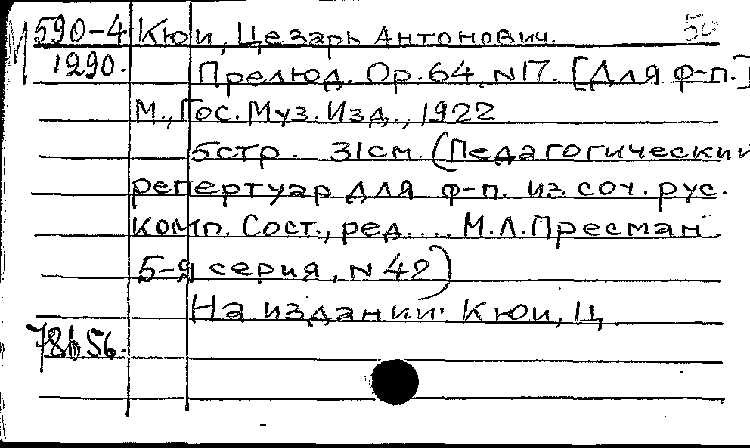 М 590-4 Кюи, Цезарь Антонович. 50
1290. Прелюд. Ор. 64. N17. [Для ф-п.]
М., Гос. Муз. Изд., 1922
5стр. 31см (Педагогический
репертуар для ф-п. из соч. рус.
комп. Сост., ред. ... М.Л. Пресман.
5-я серия, N 42)
На издании: Кюи, Ц.